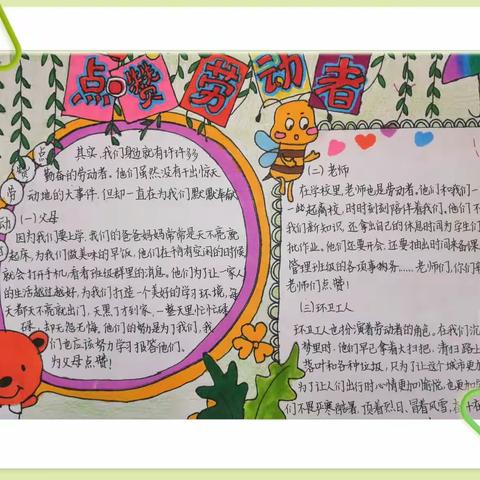 点赞劳动者
点
赞
劳
动
者
其实,我们身边就有许许多多
勤奋的劳动者。他们虽然没有干出惊天
动地的大事件,但却一直在为我们默默奉献
(一)父母
因为我们要上学,我们的爸爸妈妈常常是天不亮就
起床,为我们做美味的早饭,他们在稍有空闲的时候
就会打开手机,看看班级群里的消息。他们为了让一家人
的生活越过越好,为我们打造一个美好的学习环境,每
天都天不亮就出门,天黑了才到家,一整天里忙忙碌
碌,却无怨无悔,他们的勤是为了我们,我
们也应该努力学习报答他们。
为父母点赞!
(二)老师
在学校里,老师也是劳动者。他们和我们一
起离校,时时刻刻陪伴着我们。他们不
我们新知识,还拿出自己的休息时间为学生们
批作业。他们还要开会,还要抽出时间来备课
管理班级的各项事务……老师们,你们
老师们点赞!
(三)环卫工人
环卫工人也扮演着劳动者的角色,在我们沉
梦里时,他们早已拿着大扫把,清扫路上
落叶和各种垃圾,只为了让这个城市更加
为了让人们出行时心情更加愉悦,也更加
们不畏严寒酷暑,顶着烈日、冒着风雪,